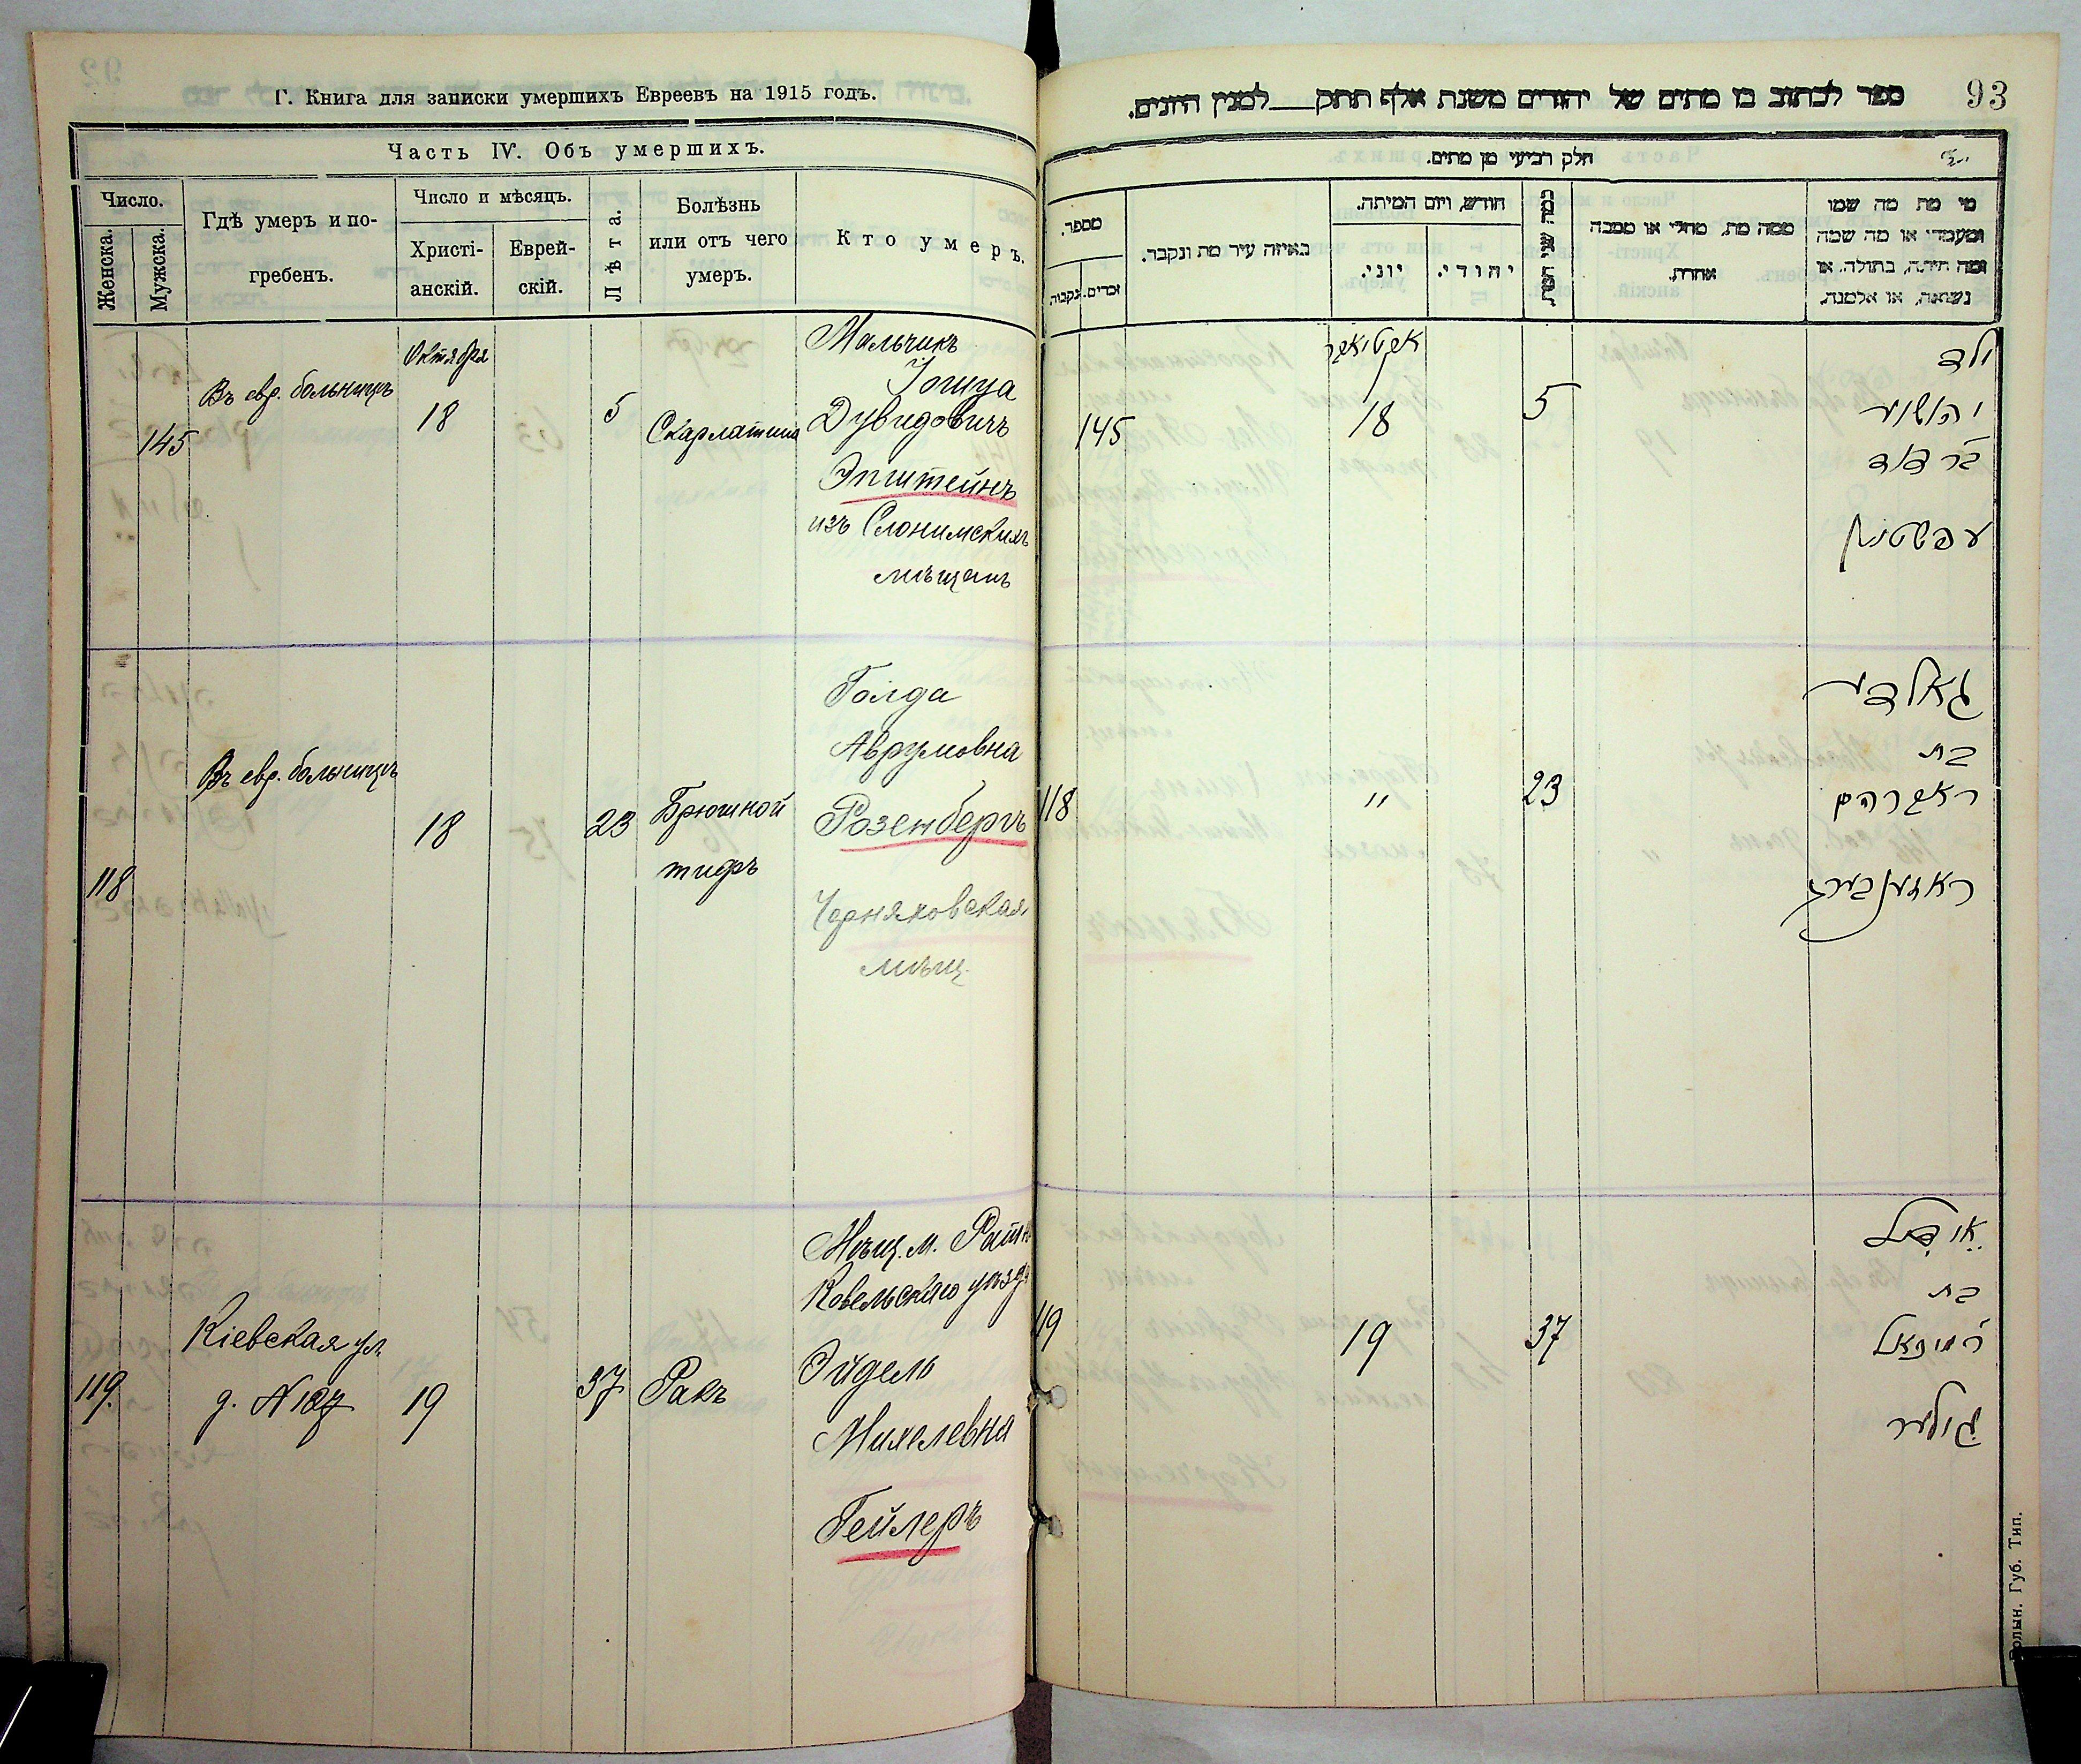 Г. Книга для записки умершихъ Евреевъ на 1915 годъ.
Часть IV. Объ умершихъ.
Число.
Женска.
Мужска.
Гдѣ умеръ и по-
гребенъ.
Число и мѣсяцъ.
Христі-
анскій.
Еврей-
скій.
Лѣта.
Болѣзнь
или отъ чего
умеръ.
Кто умеръ.
145
Въ евр. больницѣ
Октября
18
5
Скарлатина
Мальчикъ
Іошуа
Дувидовичъ
Эпштейнъ
изъ Слонимскихъ
мѣщанъ
118
Въ евр. больницѣ
18
23
Брюшной
тифъ
Голда
Аврумовна
Розенбергъ
Черняховская
мѣщ.
119.
Кіевская ул.
д. N
19
37
Ракъ
Мѣщ. м.
Ковельскаго уѣзда
Эйдель
Михелевна
Гейлеръ
93
ספר לכתוב בו מתים של יהודים משנת אלף תתק___למנין היונים.
חלק רביעי מן מתים.
מספר.
זכרים.
נקבות.
באיזה עיר מת ונקבר.
חודש, ויום המיתה.
יוני.
יהודי.
כמה שני המת
ממה מת, מחלי או מסבה
אחרת.
מי מת מה שמו
ומעמדו או מה שמה
ומה היתה, בתולה, או
נשואה, או אלמנה.
145
אקטיאבר
18
5
ילד
יהושוע
בר דוד
עפשטיין
118
"
23
גאלדע
בת
ראזענבערג
119
19
37
איידל
בת
גיילער
Волын. Губ. Тип.